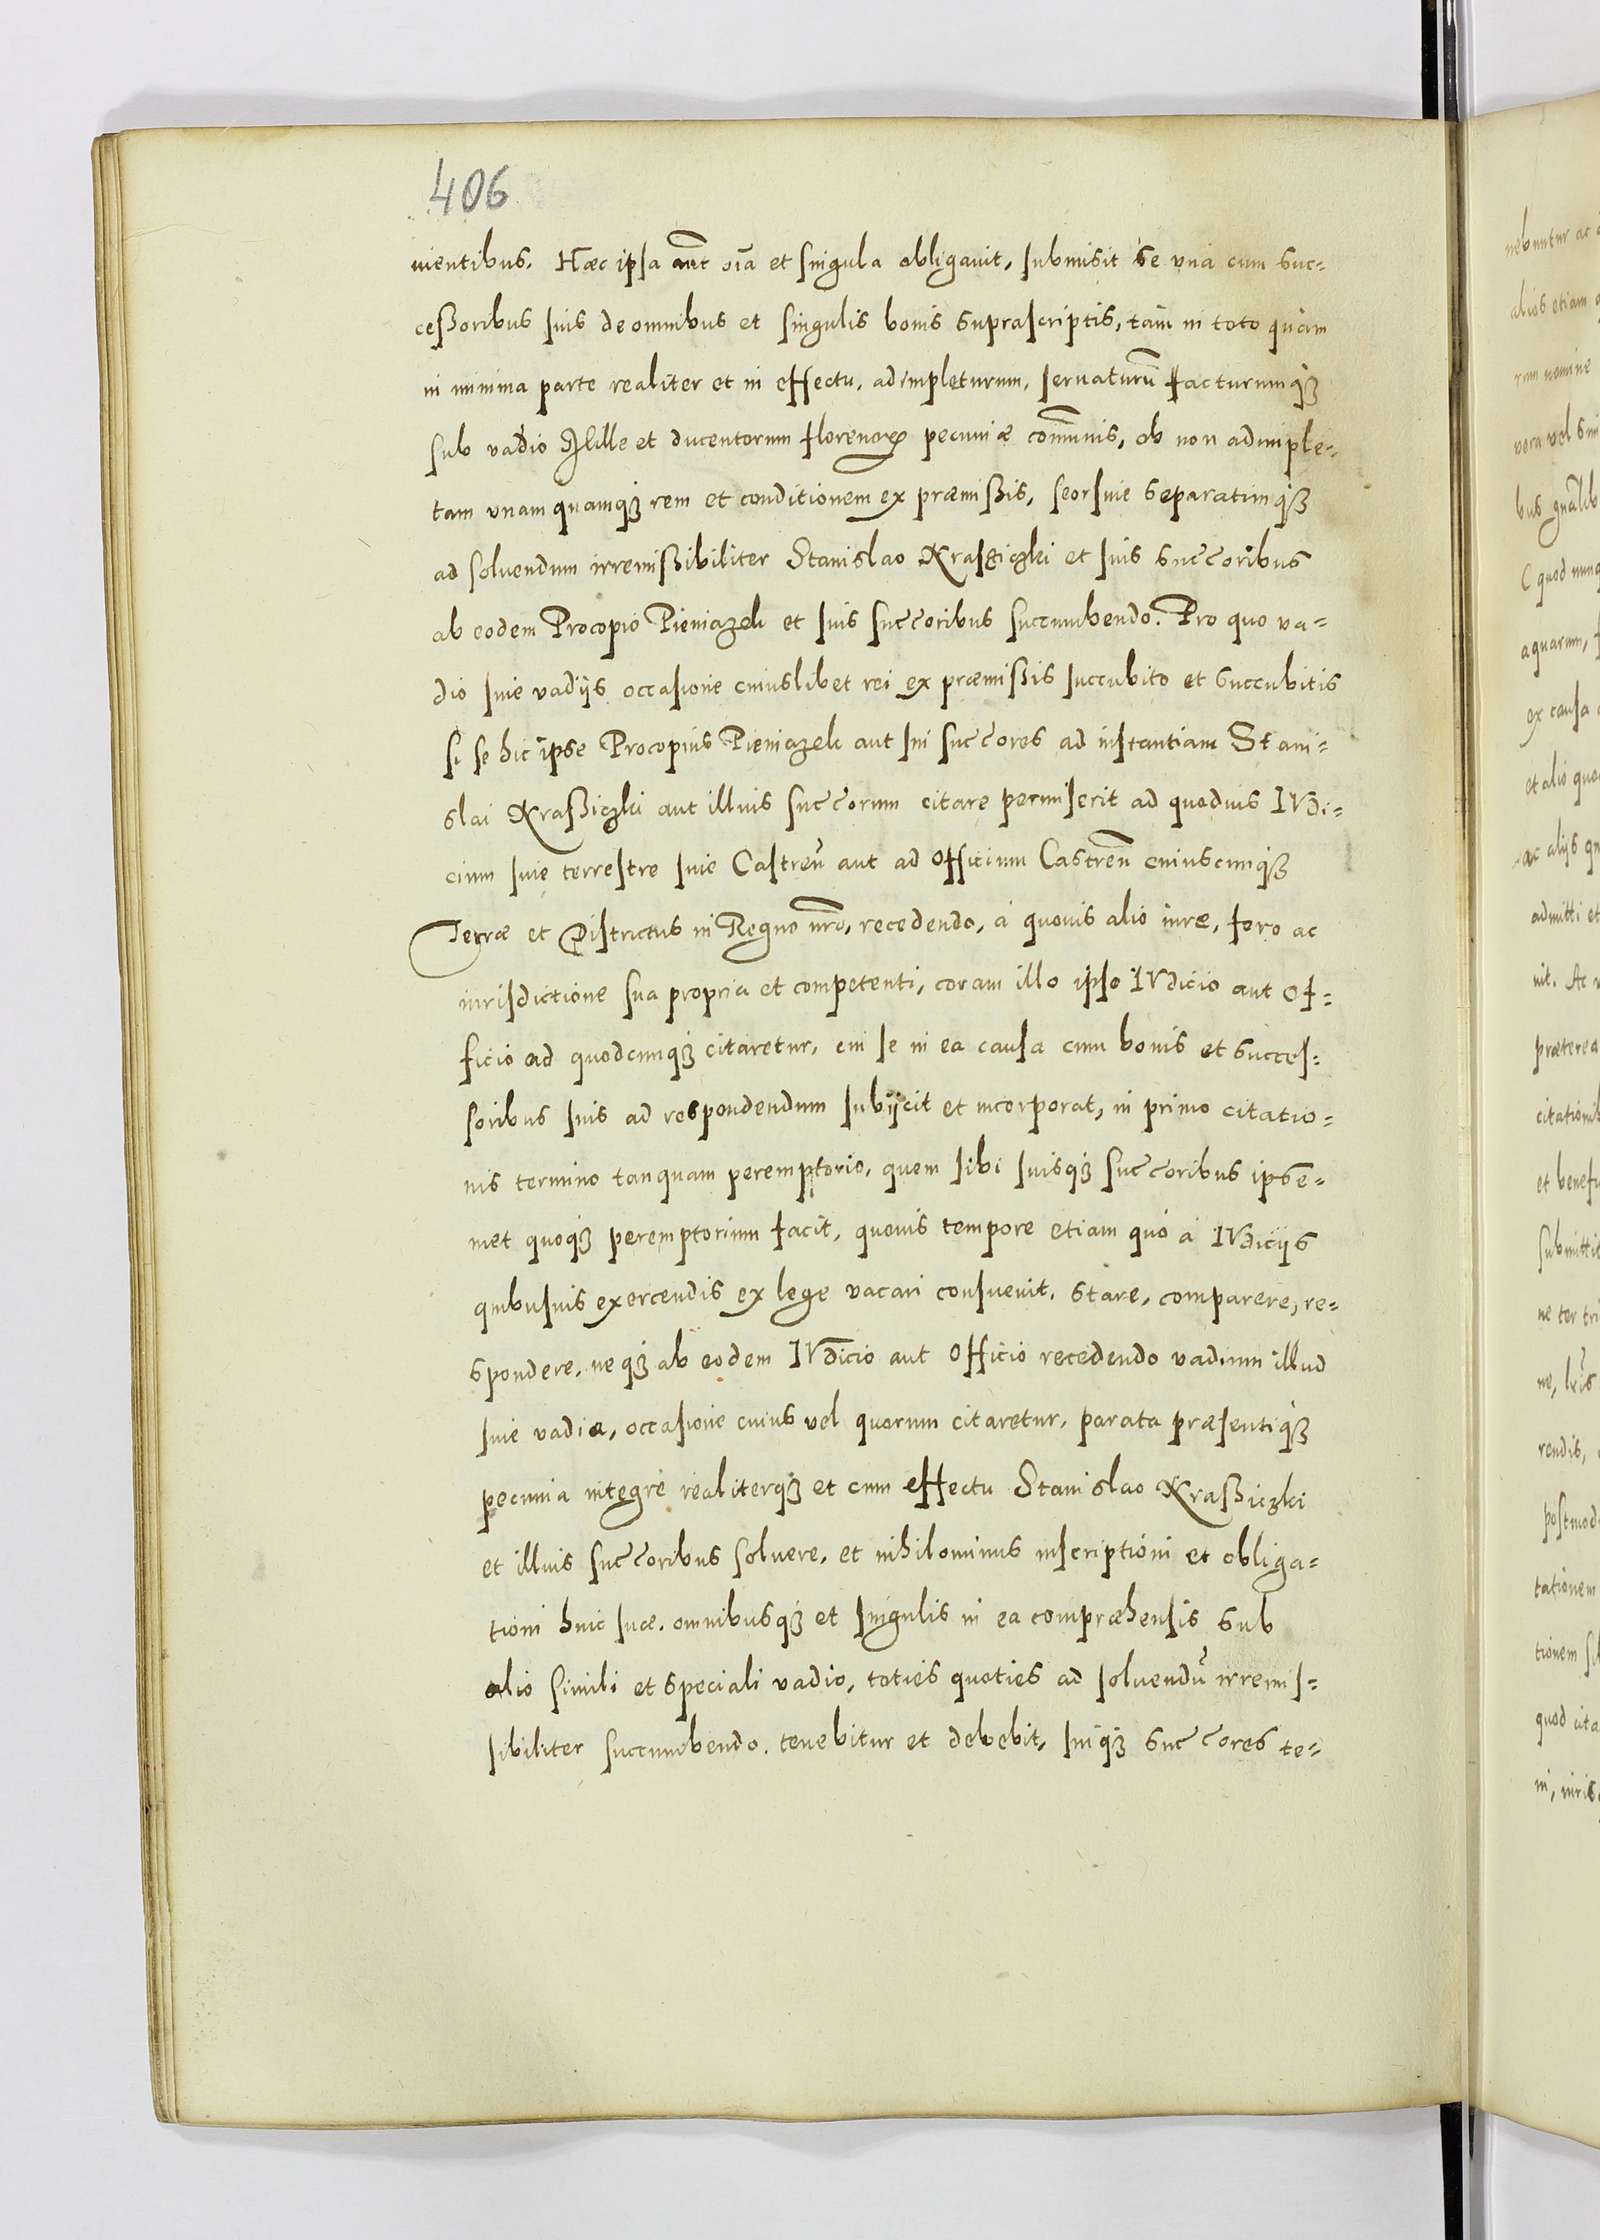 406
nientibus. Hæc ipsa aũt oĩa et singula obligauit, submisit se vnà cum suc=
ceßoribus suis de omnibus et singulis bonis suprascriptis, tàm in toto quàm
in minima parte realiter et in effectu, adimpleturum, seruaturũ facturumqȝ
sub vadio Mille et ducentorum florenoꝝ pecuniæ com̃unis, ob non adimple=
tam vnam quamqȝ rem et conditionem ex præmißis, seorsiue separatimqȝ
ad soluendum irremißibiliter Stanislao Krasziczki et suis succoribus
ab eodem Procopio Pieniazek et suis succoribus succumbendo. Pro quo va=
dio siue vadijs occasione cuiuslibet rei ex præmißis succubito et succubitis
si se hic ipse Procopius Pieniazek aut sui succores ad instantiam Stani=
slai Kraßiczki aut illius succorum citare permiserit ad quoduis IVdi=
cium siue terrestre siue Castreñ aut ad Officium Castreñ cuiuscumqȝ
Terræ et Districtus in Regno nr̃o, recedendo, à quouis alio iure, foro ac
iurisdictione sua propria et competenti, coram illo ipso IVdicio aut Of=
ficio ad quodcumqȝ citaretur, cui se in ea causa cum bonis et succes=
soribus suis ad respondendum subijcit et incorporat, in primo citatio=
nis termino tanquam peremptorio, quem sibi suisqȝ succoribus ipse=
met quoqȝ peremptorium facit, quouis tempore etiam quó à IVdicijs
quibusuis exercendis ex lege vacari consueuit, stare, comparere, re=
spondere, neqȝ ab eodem IVdicio aut Officio recedendo vadium illud
siue vadia, occasione cuius vel quorum citaretur, parata præsentiqȝ
pecunia integrè realiterqȝ et cum effectu Stanislao Kraßiczki
et illius succoribus soluere, et nihilominus inscriptioni et obliga=
tioni huic suæ, omnibusqȝ et singulis in ea compræhensis sub
alio simili et speciali vadio, toties quoties ad soluendũ irremis=
sibiliter succumbendo, tenebitur et debebit, suiqȝ succores te=
nebuntur ac
alios etiam
nomine
vera vel
bus
quod
aquarum,
ex causa
et alio
ac alijs
admitti et
nit. Ac
præterea
et
ne
rendis,
tationem
tionem
quod
ni,